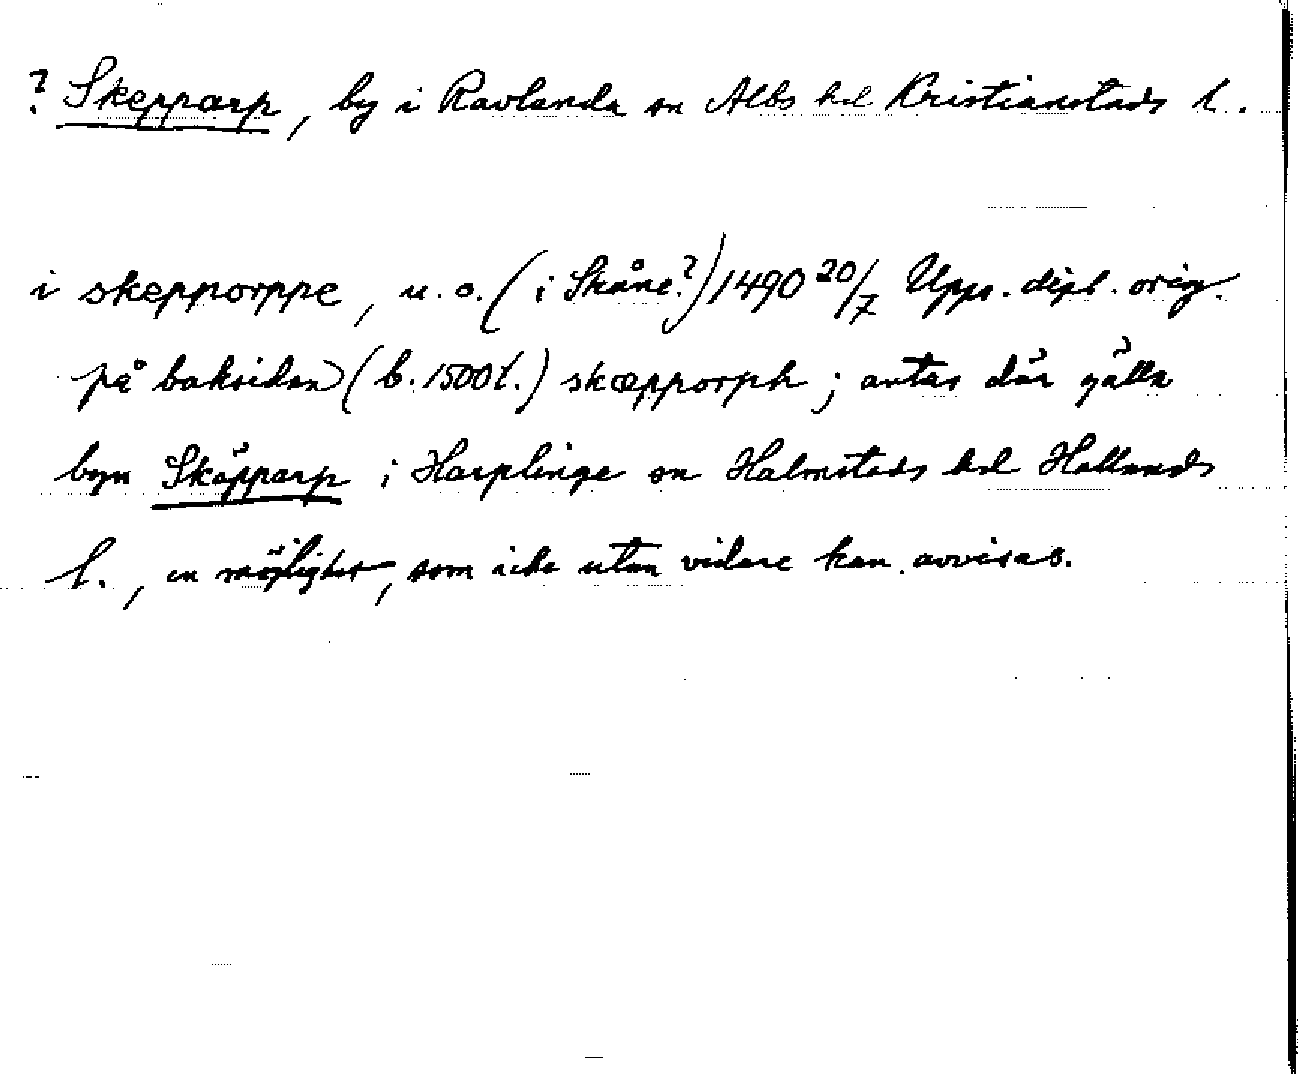 ? Skepparp, by i Ravlunda sn Albo hd Kristianstads l.
i skepporppe, u. o. (i Skåne?) 1490 20/7 Upps. dipl. orig.
på baksidan (b. 1500t.) skæpporph ; antas där gälla
byn Skäpparp i Harplinge sn Halmstads hd Hallands
l., en möjlighet, som icke utan vidare kan avvisas.